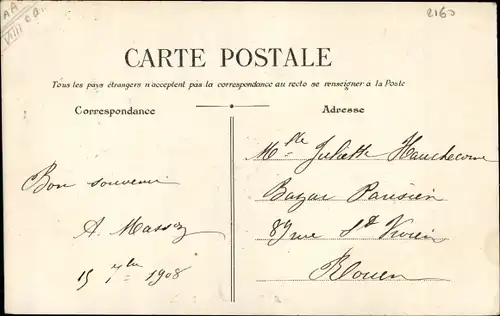 2160
CARTE POSTALE
Tous les pays étrangers n'acceptent pas la correspondance au recto se renseigner à la Poste
Correspondance
Adresse
Mlle Juliette Hauchecorne
Bazar Parisien
89 rue St Vivien
Rouen
Bon souvenir
A. Massez
15 7bre 1908